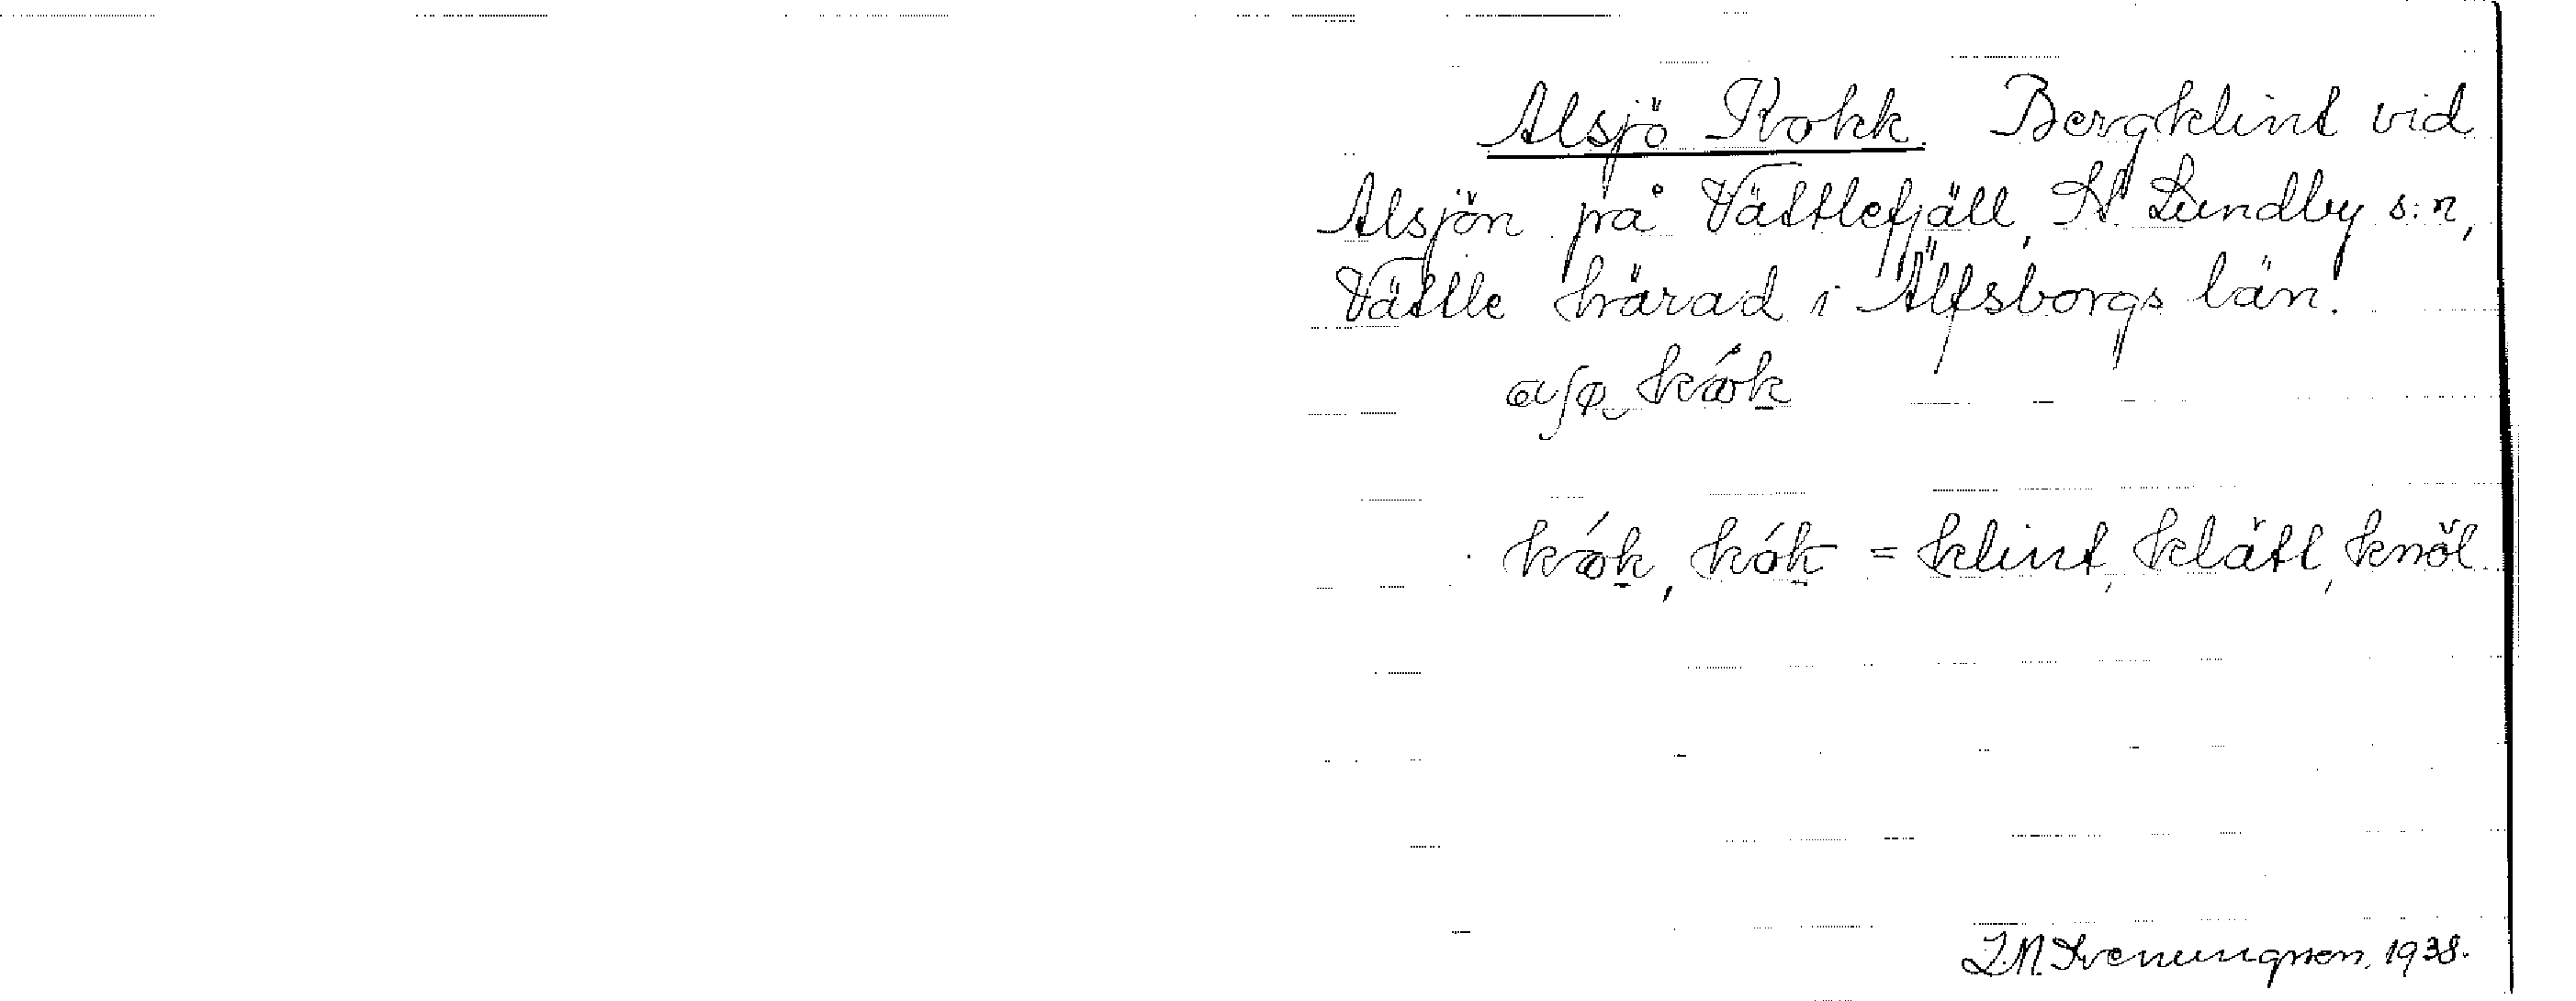 Alsjö Kokk. Bergklint vid
Alsjön på Vättlefjäll, St Lundby s:n,
Vättle härad i Älfsborgs län.
kǿk
kǿk, kók = klint, klätt, knöl
1938.